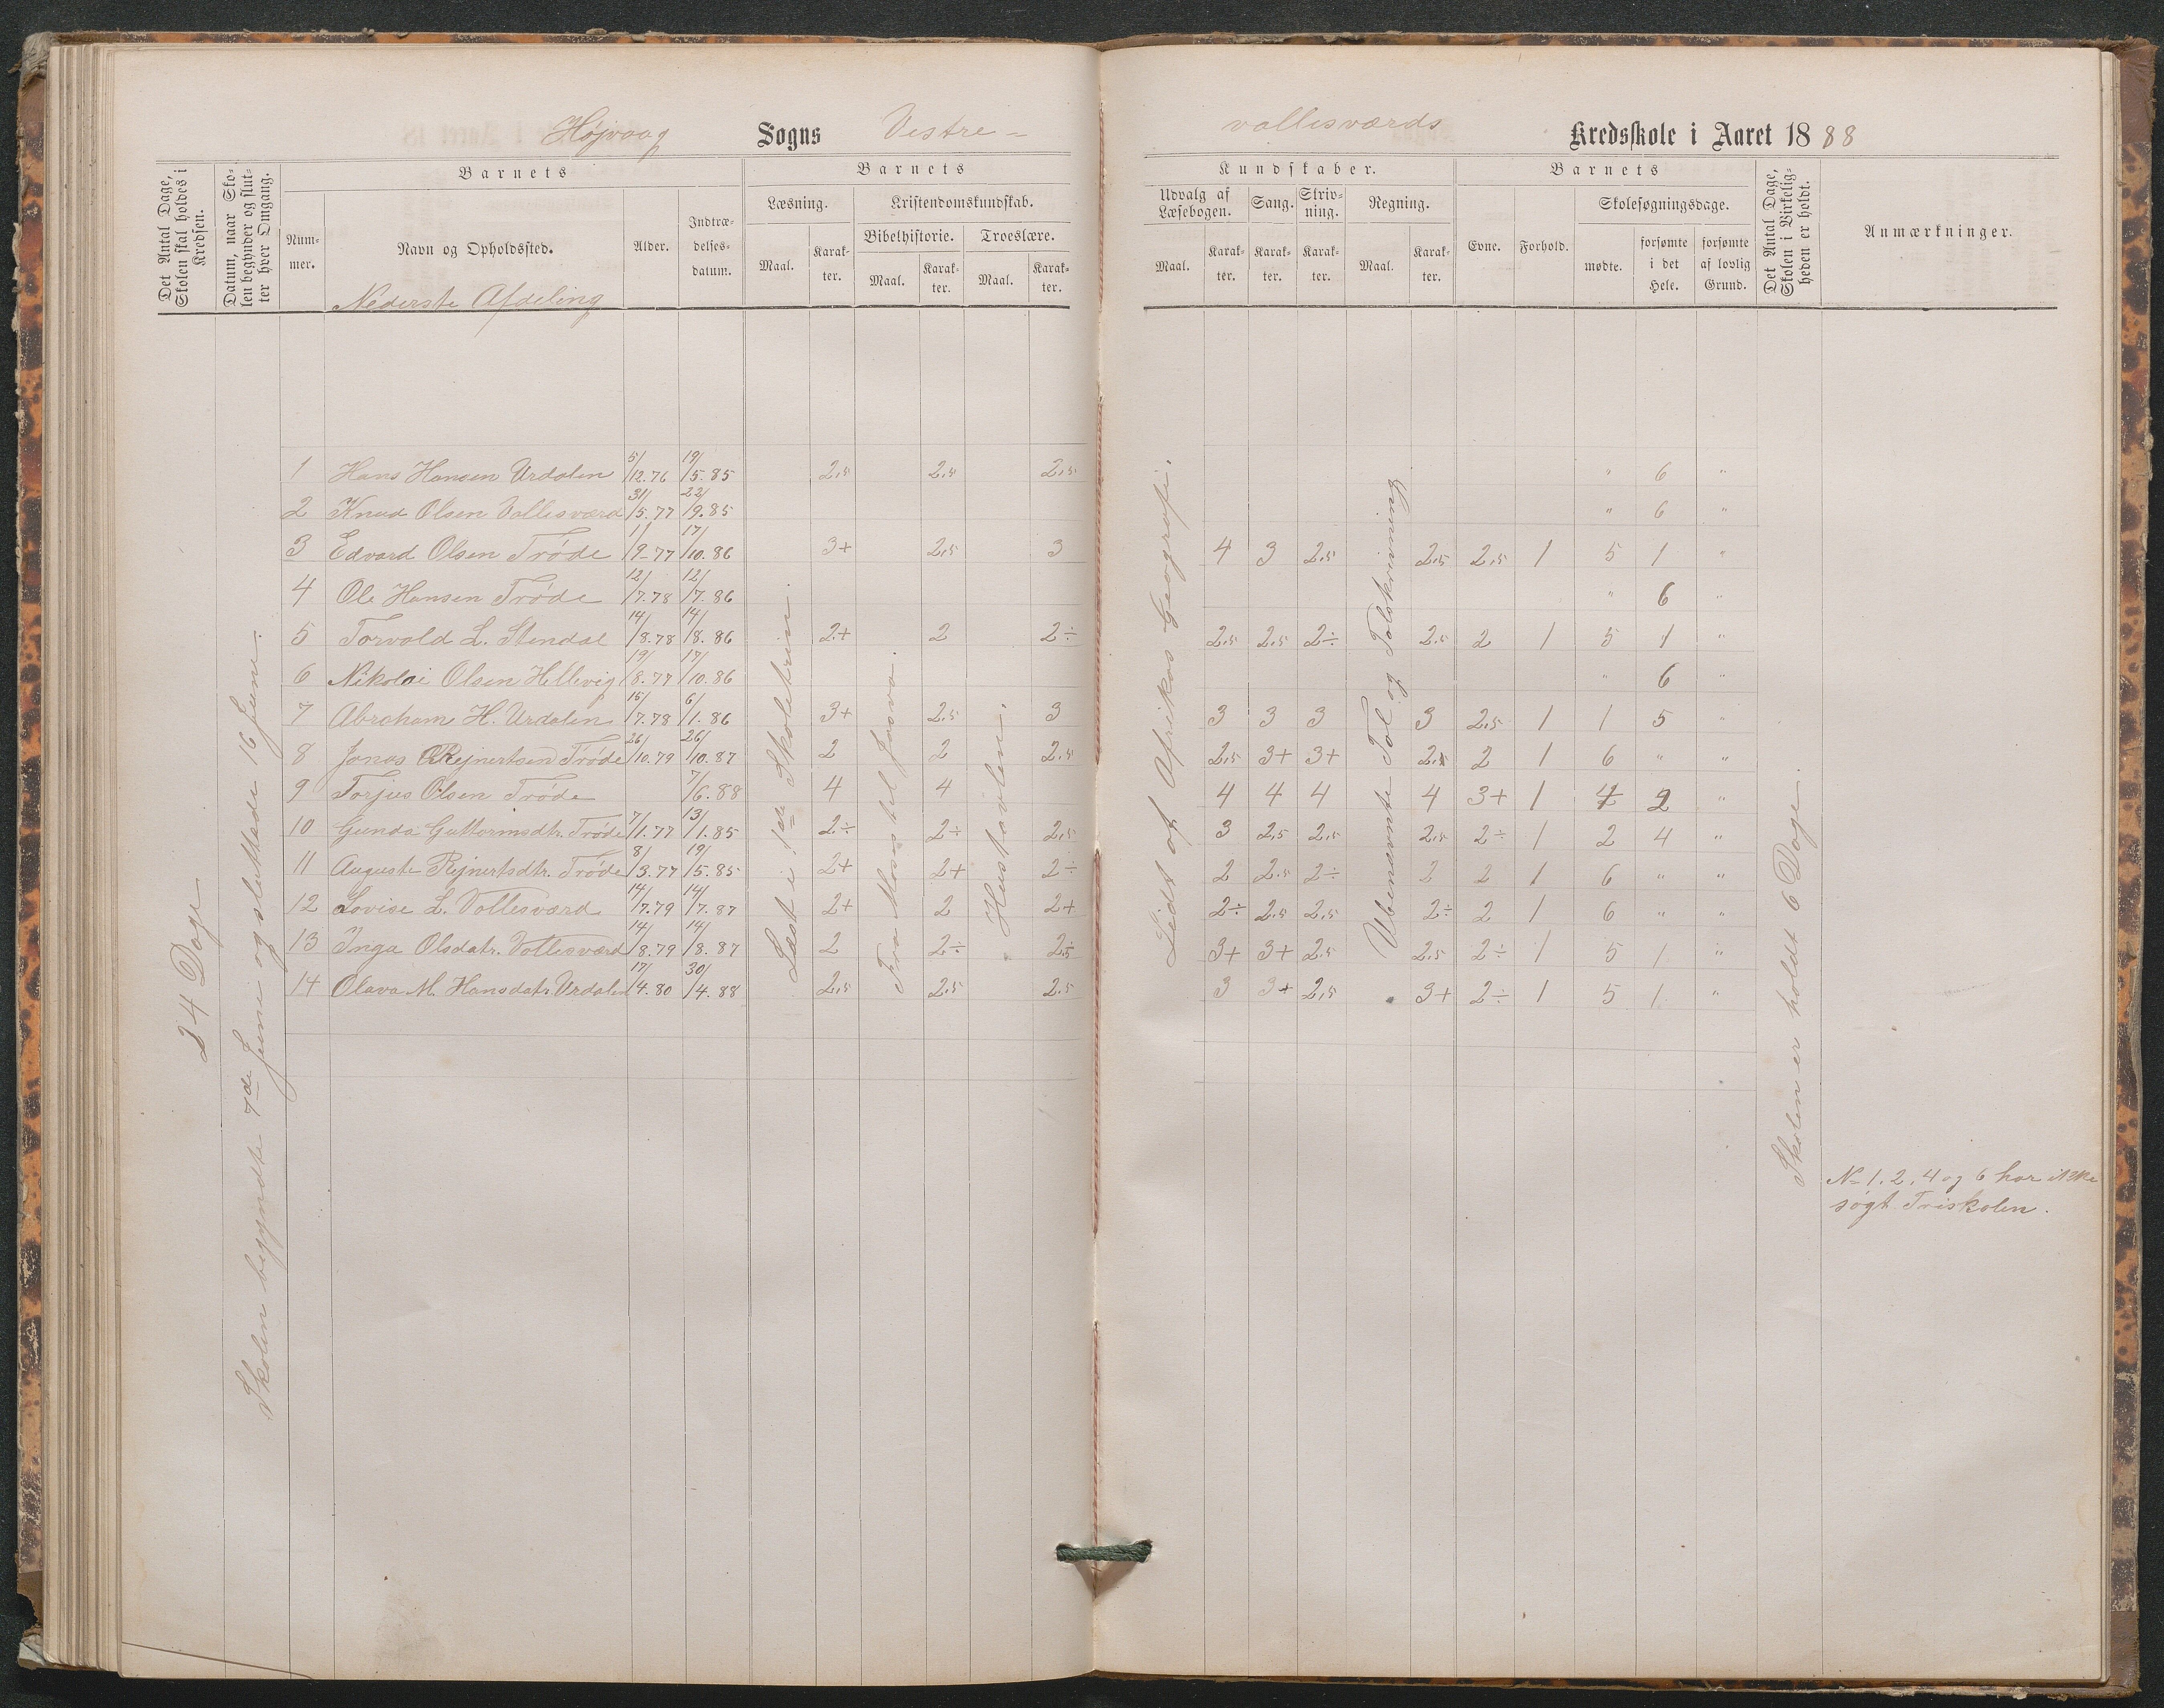 Højvaag Sogns Vestre-
vallisværds Kredsskole i Aaret 1888
Det Antal Dage, Skolen skal holdes i Kredsen.
Datum, naar Skolen begynder og slutter hver Omgang.
Barnets
Nummer.
Navn og Opholdssted.
Alder.
Indtrædelsesdatum.
Barnets
Læsning.
Maal.
Karakter.
Kristendomskundskab.
Bibelhistorie.
Maal.
Karakter.
Troeslære.
Maal.
Karakter.
Kundskaber.
Udvalg af Læsebogen.
Maal.
Karakter.
Sang.
Karakter.
Skrivning.
Karakter.
Regning.
Maal.
Karakter.
Barnets
Evne.
Forhold.
Skolesøgningsdage.
mødte.
forsømte i det Hele.
forsømte af lovlig Grund.
Det Antal Dage, Skolen i Virkeligheden er holdt.
Anmærkninger.
Nederste Afdeling
24 Dage
Skolen begyndte 7de Juni og sluttede 16 June.
Læst i 1ste Skoletrin.
Fra Moses til Josva.
Hustavlen.
Lidt af Afrikas Geografi.
Ubenævnte Tal og Talskrivning
Skolen er holdt 6 Dage.
1 Hans Hansen Urdalen 5/12.76 19/5.85 2,5 2,5 2,5 " 6 "
2 Knud Olsen Vallisværd 31/5.77 22/9.85 " 6 "
3 Edvard Olsen Trøde 1/9-77 17/10.86 3+ 2,5 3 4 3 2,5 2,5 2,5 1 5 1 "
4 Ole Hansen Trøde 12/7.78 12/7.86 " 6 "
5 Torvald L. Stendal 14/8.78 14/8.86 2+ 2 2÷ 2,5 2,5 2÷ 2,5 2 1 5 1 "
6 Nikolai Olsen Hellevig 19/8.77 17/10.86 " 6 "
7 Abraham H. Urdalen 15/7.78 6/1.86 3+ 2,5 3 3 3 3 3 2,5 1 1 5 "
8 Jonas Rejnertsen Trøde 26/10.79 26/10.87 2 2 2,5 2,5 3+ 3+ 2,5 2 1 6 " "
9 Torjus Olsen Trøde 7/6.88 4 4 4 4 4 4 3+ 1 4 2 "
10 Gunda Guttormsdtr. Trøde 7/1.77 13/1.85 2÷ 2÷ 2,5 3 2,5 2,5 2,5 2÷ 1 2 4 "
11 Auguste Rejnertsdtr. Trøde 8/3.77 19/5.85 2+ 2+ 2÷ 2 2,5 2÷ 2 2 1 6 " "
12 Lovise L. Vallesværd 14/7.79 14/7.87 2+ 2 2+ 2÷ 2,5 2,5 2÷ 2 1 6 " "
13 Inga Olsdatr. Vallisværd 14/8.79 14/8.87 2 2÷ 2,5 3+ 3+ 2,5 2,5 2÷ 1 5 1 "
14 Olava M. Hansdatr. Urdalen 17/4.80 30/4.88 2,5 2,5 2,5 3 3+ 2,5 3+ 2÷ 1 5 1 "
N- 1. 2. 4 og 6 har ikke
søgt Friskolen.